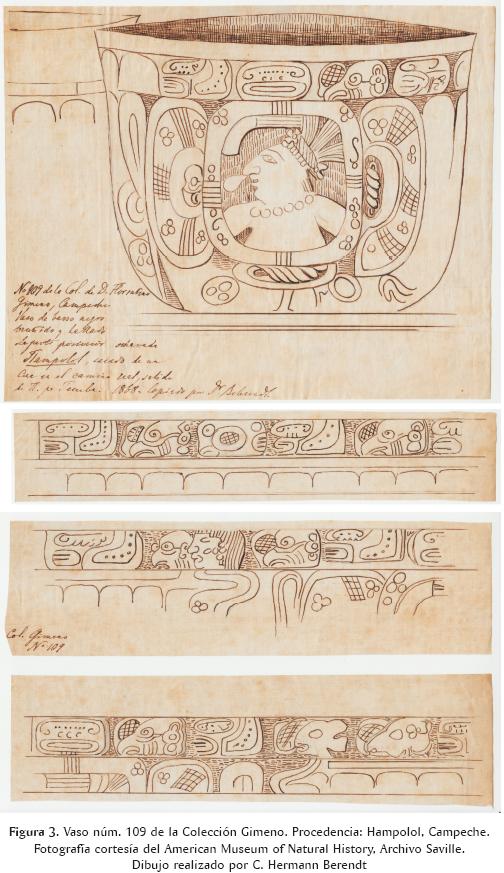 No 109 de la Col. de D. Florentino
Gimeno, Campeche
Vaso de barro negro
bruñido y
La parte posterior
Hampolol, sacado de un
en el camino real, salida
de H. pa Tenabo. 1868. Copiado por Dr Berendt.
Col. Gimeno
No 109
Figura 3. Vaso núm. 109 de la Colección Gimeno. Procedencia: Hampolol, Campeche.
Fotografía cortesía del American Museum of Natural History, Archivo Saville.
Dibujo realizado por C. Hermann Berendt